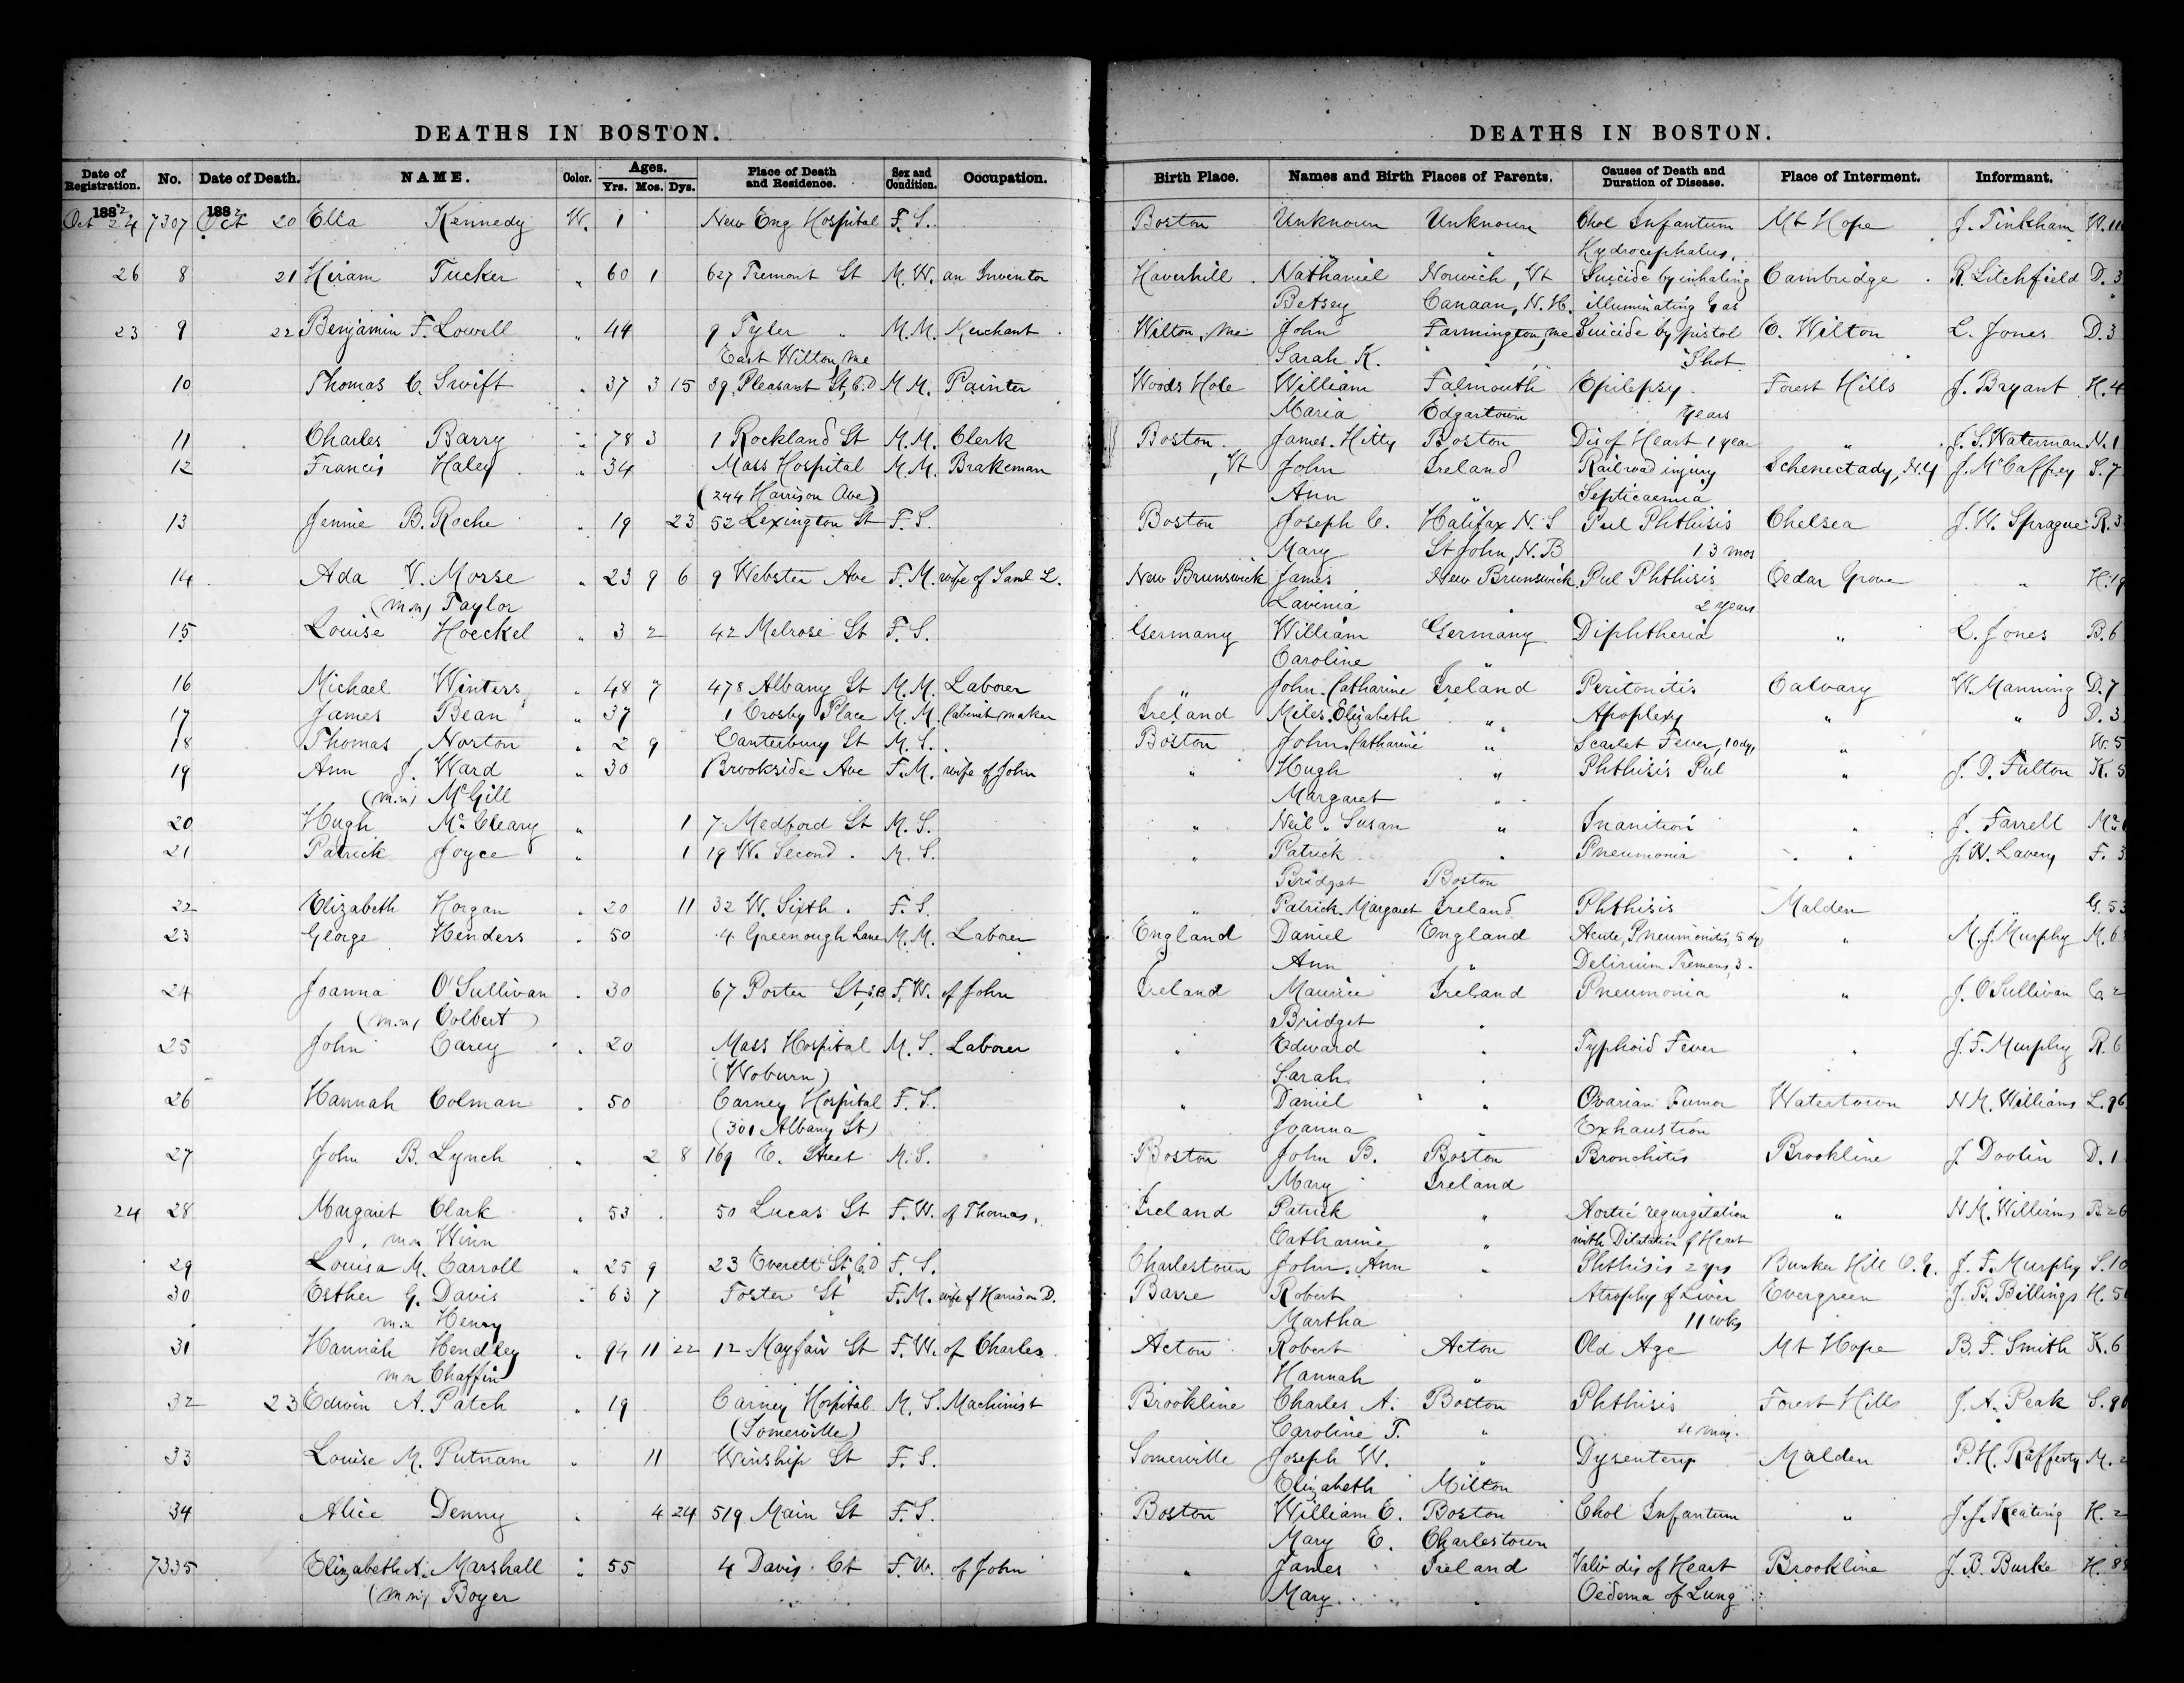 DEATHS IN BOSTON.
Date of Registration. No. Date of Death. NAME. Color. Ages. Yrs. Mos. Dys. Place of Death and Residence. Sex and Condition. Occupation.
1882 1882
Oct 24 7307 Oct 20 Ella Kennedy W. 1 New Eng Hospital F. S.
26 8 21 Hiram Tucker " 60 1 627 Tremont St M. W. an Inventor
23 9 22 Benjamin F. Lowell " 44 9 Tyler " M. M. Merchant
East Wilton, Me
10 Thomas C. Swift " 37 3 15 39 Pleasant St, M. M. Painter
11 Charles Barry " 78 3 1 Rockland St M. M. Clerk
12 Francis Haley " 34 Mass Hospital M. M. Brakeman
(244 Harrison Ave)
13 Jennie B. Roche " 19 23 52 Lexington St F. S.
14 Ada V. Morse " 23 9 6 9 Webster Ave F. M. wife of Saml L.
(m.n) Taylor
15 Louise Hoeckel " 3 2 42 Melrose St F. S.
16 Michael Winters " 48 7 478 Albany St M. M. Laborer
17 James Bean " 37 1 Crosby Place M. M. Cabinet maker
18 Thomas Norton " 2 9 Canterbury St M. S.
19 Ann J. Ward " 30 Brookside Ave F. M. wife of John
(m.n) McGill
20 Hugh McCleary " 1 7 Medford St M. S.
21 Patrick Joyce " 1 19 W. Second " M. S.
22 Elizabeth Horgan " 20 11 32 W. Sixth " F. S.
23 George Henders " 50 4 Greenough Lane M. M. Laborer
24 Joanna O'Sullivan " 30 67 Porter St, F. W. of John
(m.n, Colbert)
25 John Carey " 20 Mass Hospital M. S. Laborer
(Woburn)
26 Hannah Colman " 50 Carney Hospital F. S.
(301 Albany St)
27 John B. Lynch " 2 8 169 E. Street M. S.
24 28 Margaret Clark " 53 50 Lucas St F. W. of Thomas
m n Winn
29 Louisa M. Carroll " 25 9 23 Everett St F. S.
30 Esther G. Davis " 63 7 Foster St F. M. wife of Harrison D.
m.n Henry
31 Hannah Hendley " 94 11 22 12 Mayfair St F. W. of Charles
m n Chaffin
32 23 Edwin A. Patch " 19 Carney Hospital M. S. Machinist
(Somerville)
33 Louise M. Putnam " 11 Winship St F. S.
34 Alice Denny " 4 24 519 Main St F. S.
7335 Elizabeth A. Marshall " 55 4 Davis Ct F. W. of John
(m n, Boyer
DEATHS IN BOSTON.
Birth Place. Names and Birth Places of Parents. Causes of Death and Duration of Disease. Place of Interment. Informant.
Boston Unknown Unknown Chol Infantum Mt Hope J. Tinkham W. 11
" " Hydrocephalus.
Haverhill Nathaniel Norwich, Vt Suicide by inhaling Cambridge R. Litchfield D. 3
Betsey Canaan, N. H. illuminating Gas
Wilton, Me John Farmington, Me Suicide by pistol E. Wilton L. Jones D. 3
Sarah K. " " Shot
Woods Hole William Falmouth Epilepsy Forest Hills J. Bryant H. 4
Maria Edgartown years
Boston James. Hitty Boston Dis of Heart 1 year " J. S. Waterman N. 1
, Vt John Ireland Railroad injury Schenectady, N.Y J. McCaffrey S. 7
Ann " Septicaemia
Boston Joseph C. Halifax N. S Pul Phthisis Chelsea J. W. Sprague R. 3
Mary St John, N. B 13 mos
New Brunswick James New Brunswick Pul Phthisis Cedar Grove " H. 19
Lavinia " 2 years
Germany William Germany Diphtheria " L. Jones B. 6
Caroline "
" John. Catharine Ireland Peritonitis Calvary W. Manning D. 7
Ireland Miles. Elizabeth " Apoplexy " " D. 3
Boston John. Catharine " Scarlet Fever, 10 dys " W. 5
" Hugh " Phthisis Pul " J. D. Fulton K. 5
Margaret "
" Neil " Susan " Inanition " J. Farrell Mc
" Patrick " Pneumonia " " J. W. Lavery F. 3
Bridget Boston
" Patrick. Margaret Ireland Phthisis Malden " G. 53
England Daniel England Acute Pneumonitis, 5 dy " M. J. Murphy M. 6
Ann " Delirium Tremens, 3 "
Ireland Maurice Ireland Pneumonia " J. O'Sullivan C. 2
Bridget "
" Edward " Typhoid Fever " J. F. Murphy R. 6
Sarah "
" Daniel " Ovarian Tumor Watertown N M. Williams L. 96
Joanna " Exhaustion
Boston John B. Boston Bronchitis Brookline J Doolin D. 1
Mary Ireland
Ireland Patrick " Aortic regurgitation " N M. Williams B 26
Catharine " with Dilatation of Heart
Charlestown John. Ann " Phthisis 2 yrs Bunker Hill J. F. Murphy S. 10
Barre Robert Atrophy of Liver Evergreen J. B. Billings H. 5
Martha 11 wks
Acton Robert Acton Old Age Mt Hope B. F. Smith K. 6
Hannah "
Brookline Charles A. Boston Phthisis Forest Hills J. A. Peak S. 9
Caroline T. " mos.
Somerville Joseph W. " Dysentery Malden P. H. Rafferty M. 2
Elizabeth Milton
Boston William E. Boston Chol Infantum " J. J. Keating H. 2
Mary E. Charlestown
" James Ireland Valv dis of Heart Brookline J. B. Burke H. 88
Mary " Oedema of Lung